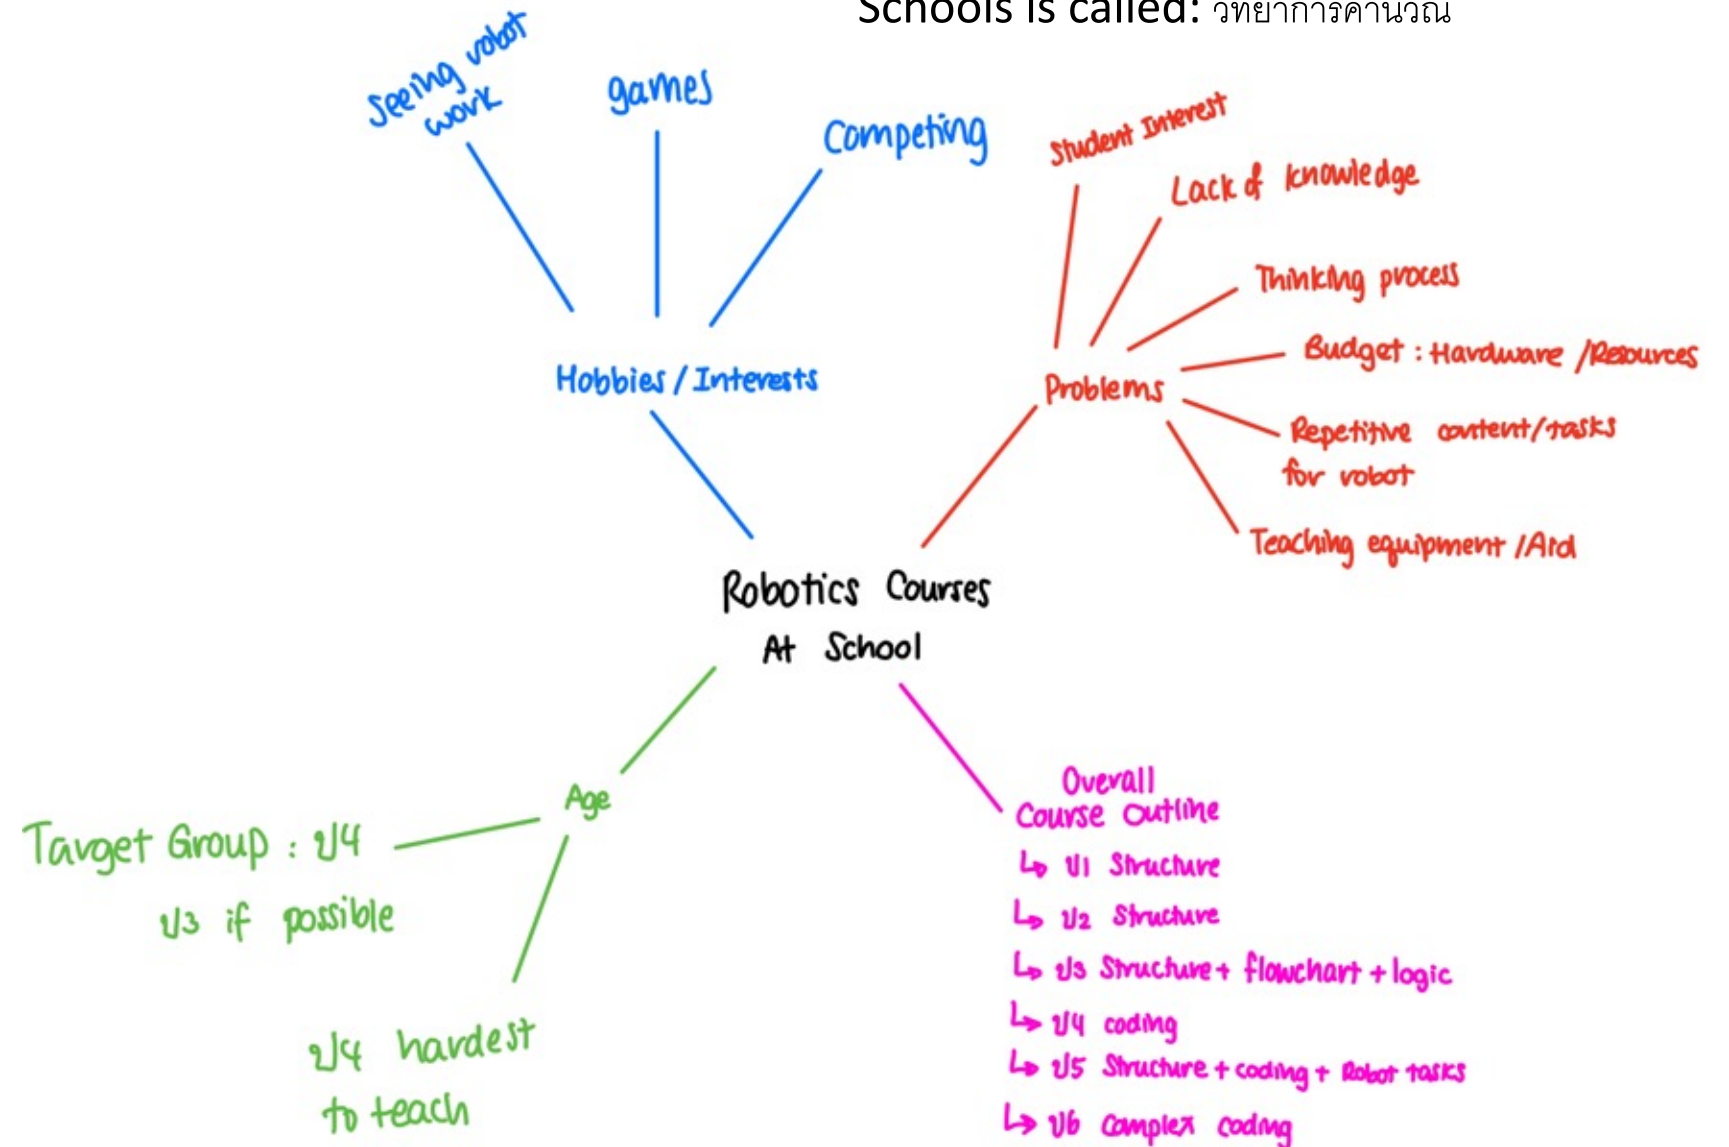 Schools is called: วิทยาการคำนวณ
Seeing robot
work
games
Competing
Hobbies / Interests
Student Interest
Lack of knowledge
Thinking process
Budget : Hardware / Resources
Problems
Repetitive content/tasks
for robot
Teaching equipment / Aid
Robotics Courses
At School
Age
Target Group : ป4
ป3 if possible
ป4 hardest
to teach
Overall
Course Outline
↳ ป1 Structure
↳ ป2 Structure
↳ ป3 Structure + flowchart + logic
↳ ป4 coding
↳ ป5 Structure + coding + Robot tasks
↳ ป6 Complex coding